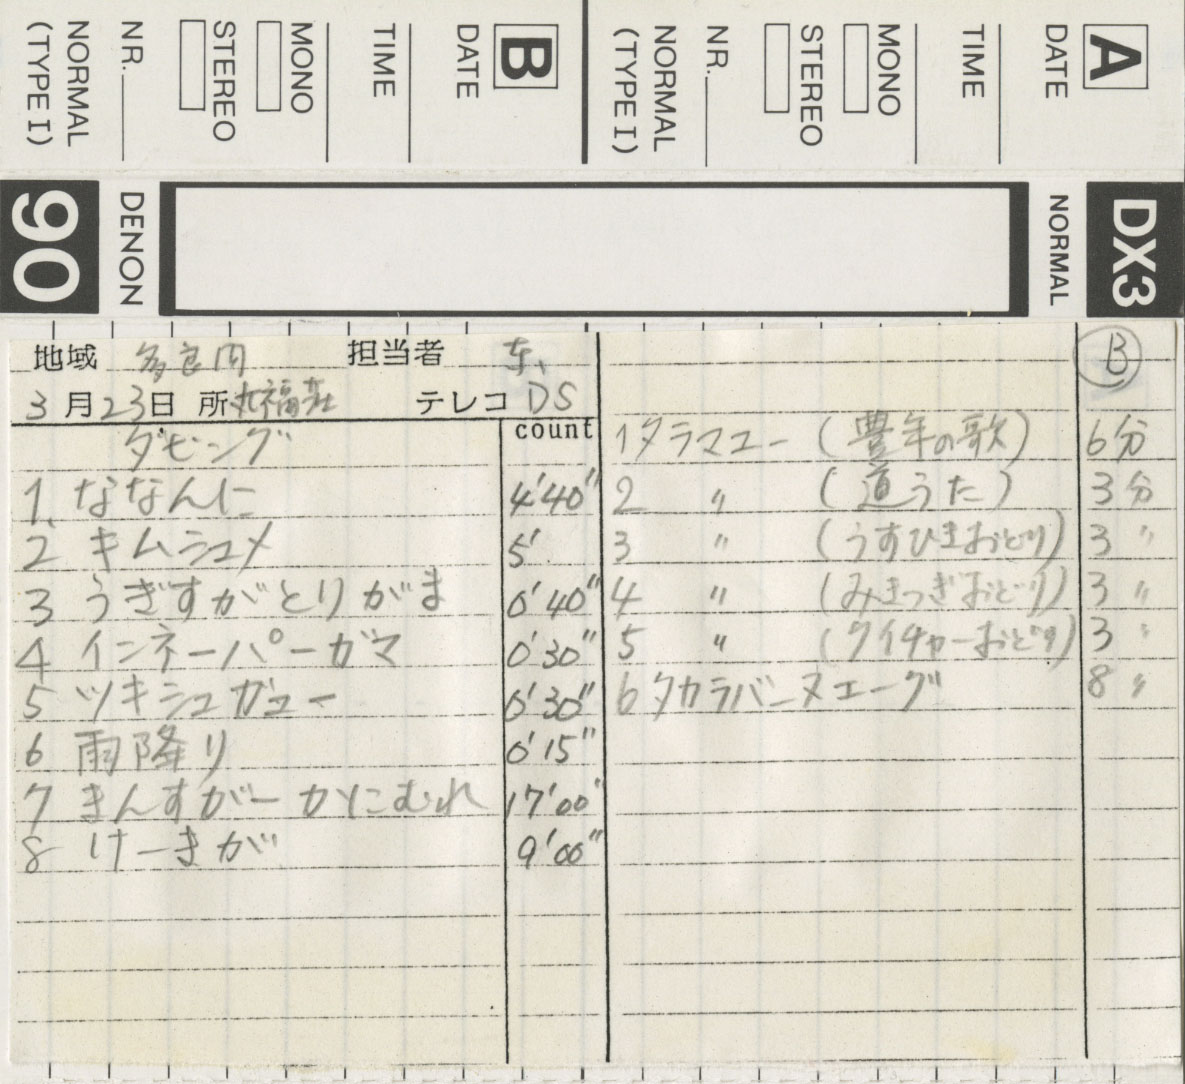 A
DATE
TIME
MONO
STEREO
NR.
NORMAL
(TYPE I)
B
DATE
TIME
MONO
STEREO
NR.
NORMAL
(TYPE I)
DX3
NORMAL
DENON
90
地域 多良間 担当者 東、
3月23日 所 丸福荘 テレコ DS
ダビング count
1. ななんに 4'40"
2 キムシュメ 5'
3 うぎすがとりがま 0'40"
4 インネーパーガマ 0'30"
5 ツキシュガュー 0'30"
6 雨降り 0'15"
7 まんすがーかにむれ 17'00"
8 けーまが 9'00"
B
1 タラマユー (豊年の歌) 6分
2 〃 (道うた) 3分
3 〃 (うすひきおどり) 3 〃
4 〃 (みきつぎおどり) 3 〃
5 〃 (クイチャーおどり) 3 〃
6 タカラバンヌエーグ 8 〃